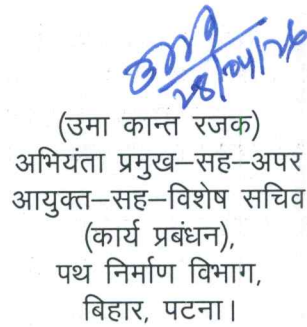 28/04/26
(उमा कान्त रजक)
अभियंता प्रमुख–सह–अपर
आयुक्त–सह–विशेष सचिव
(कार्य प्रबंधन),
पथ निर्माण विभाग,
बिहार, पटना।